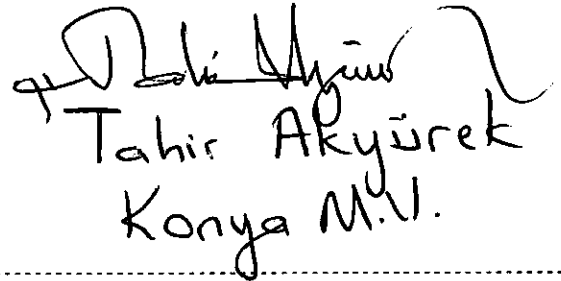 Tahir Akyürek
Konya M.V.